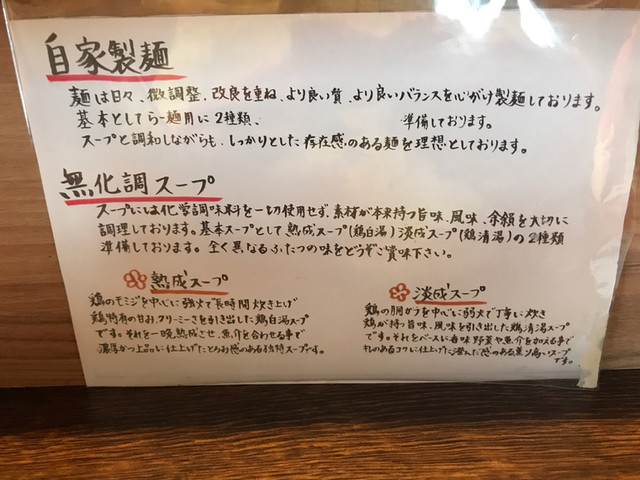 自家製麺
麺は日々、微調整、改良を重ね、より良い質、より良いバランスを心がけ製麺しております。
基本としてらー麺用に2種類、 準備しております。
スープと調和しながらも、しっかりとした存在感のある麺を理想としております。
無化調スープ
スープには化学調味料を一切使用せず、素材が本来持つ旨味、風味、余韻を大切に
調理しております。基本スープとして熟成スープ(鶏白湯)淡成スープ(鶏清湯)の2種類
準備しております。全く異なるふたつの味をどうぞご賞味下さい。
熟成スープ
鶏のモミジを中心に強火で長時間炊き上げ
鶏特有の甘み、クリーミーさを引き出した鶏白湯スープ
です。それを一晩熟成させ、魚介を合わせる事で
濃厚かつ上品に仕上げたとろみ感のある独特スープです。
淡成スープ
鶏の胴ガラを中心に弱火で丁寧に炊き
鶏が持つ旨味、風味を引き出した鶏清湯スープ
です。それをベースに香味野菜や魚介を加える事で
キレのあるコクに仕上げた澄んだ感のある薫り高いスープ
です。